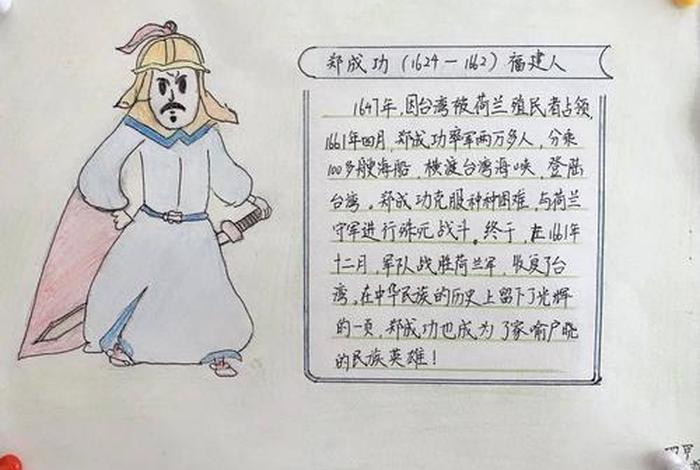 郑成功(1624—1662)福建人
1647年,因台湾被荷兰殖民者占领,
1661年四月,郑成功率军两万多人,分乘
100多艘海船,横渡台湾海峡,登陆
台湾。郑成功克服种种困难,与荷兰
守军进行殊死战斗。终于,在1661年
十二月,军队战胜荷兰军,收复了台
湾,在中华民族的历史上留下了光辉
的一页,郑成功也成为了家喻户晓
的民族英雄!